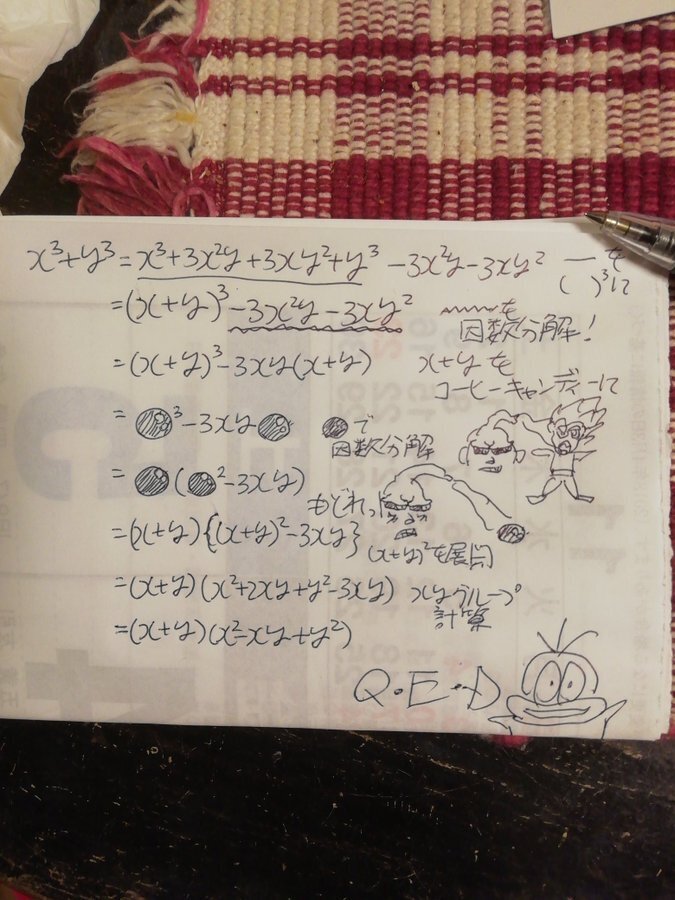 x³+y³ = x³+3x²y+3xy²+y³ -3x²y-3xy² ―を ( )³に
=(x+y)³-3x²y-3xy² 〰〰を 因数分解!
=(x+y)³-3xy(x+y) x+yを コーヒーキャンディーに
= ●³-3xy● ●で 因数分解
= ●(●²-3xy) もどれっ
=(x+y){(x+y)²-3xy} (x+y)²を展開
=(x+y)(x²+2xy+y²-3xy) xyグループ 計算
=(x+y)(x²-xy+y²)
Q.E.D